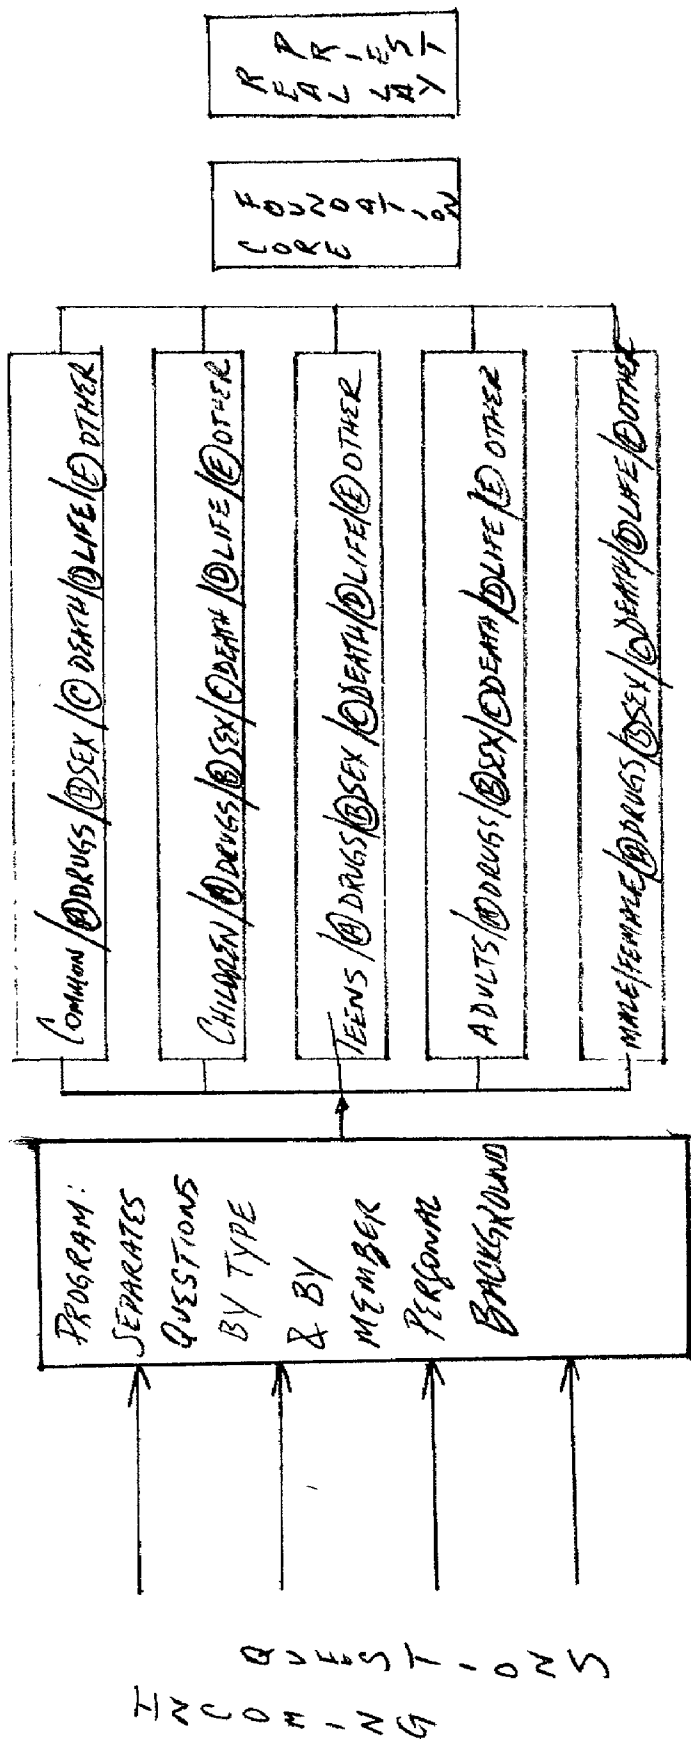 INCOMING
QUESTIONS
PROGRAM:
SEPARATES
QUESTIONS
BY TYPE
& BY
MEMBER
PERSONAL
BACKGROUND
COMMON/(A)DRUGS/(B)SEX/(C)DEATH/(D)LIFE/(E)OTHER
CHILDREN/(A)DRUGS/(B)SEX/(C)DEATH/(D)LIFE/(E)OTHER
TEENS/(A)DRUGS/(B)SEX/(C)DEATH/(D)LIFE/(E)OTHER
ADULTS/(A)DRUGS/(B)SEX/(C)DEATH/(D)LIFE/(E)OTHER
MALE/FEMALE/(A)DRUGS/(B)SEX/(C)DEATH/(D)LIFE/(E)OTHER
CORE
FOUNDATION
REAL LAY
PRIEST